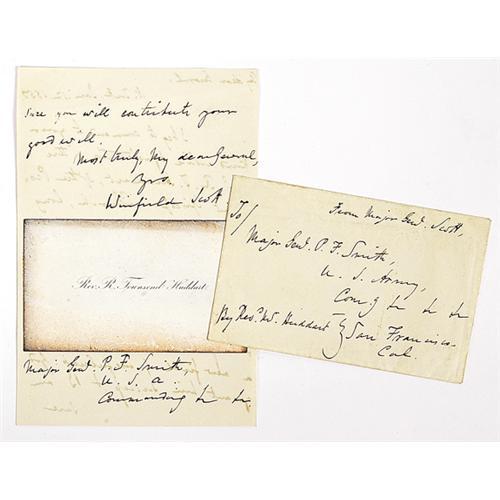 sure you will contribute your
good will.
Most truly, my dear General,
Yrs.
Winfield Scott
Rev. R. Townsend Huddart
Major Genl. P. F. Smith,
U. S. A.
Commanding &c &c
From Major Genl. Scott,
To/
Major Genl. P. F. Smith,
U. S. Army,
Comg &c &c &c
San Francisco
Cal.
By Revd. Mr. Huddart